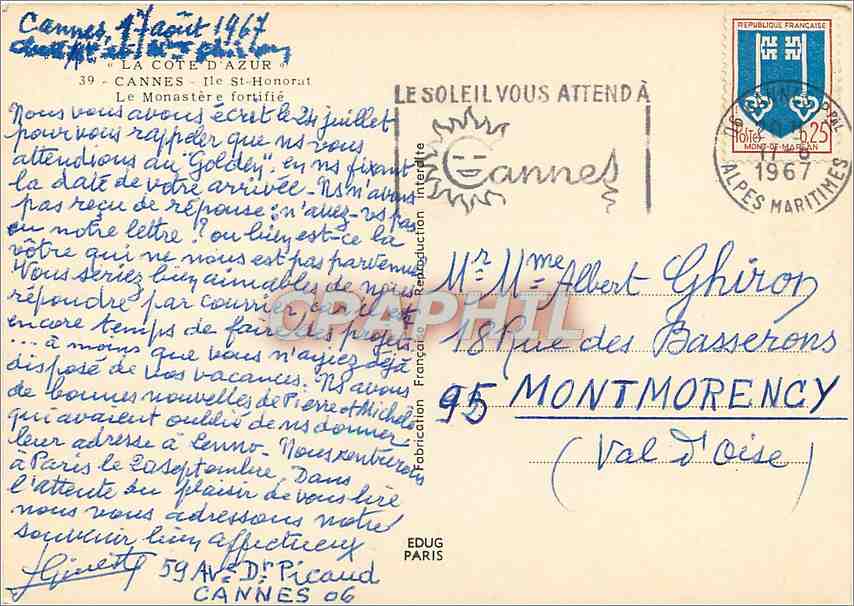 Cannes, 17 août 1967
" LA COTE D'AZUR "
39 - CANNES - Ile St-Honorat
Le Monastère fortifié
Nous vous avons écrit le 24 juillet
pour vous rappeler que ns vous
attendions au "Golden" en ns fixant
la date de votre arrivée. Ns n'avons
pas reçu de réponse : n'avez-vs pas
eu notre lettre ? ou bien est-ce la
vôtre qui ne nous est pas parvenue
Vous seriez bien aimables de nous
répondre par courrier, car il est
encore temps de faire des projets
... à moins que vous n'ayiez déjà
disposé de vos vacances. Ns avons
de bonnes nouvelles de Pierre et Michèle
qui avaient oublié de ns donner
leur adresse à Lenno - Nous rentrerons
à Paris le 20 septembre. Dans
l'attente du plaisir de vous lire
nous vous adressons notre
souvenir bien affectueux
59 Ave Dr Picaud
CANNES 06
Fabrication Française Reproduction interdite
EDUG
PARIS
LE SOLEIL VOUS ATTEND À
Cannes
REPUBLIQUE FRANÇAISE
POSTES
0,25
MONT-DE-MARSAN
06 CANNES PPAL
17-8
1967
ALPES MARITIMES
Mr Mme Albert Ghiron
18 Rue des Basserons
95 MONTMORENCY
(Val d'Oise)
CPAPHIL